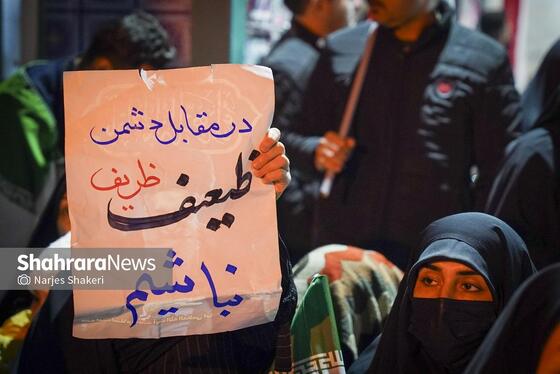 در مقابل دشمن
ظریف
ظعیف
نباشیم
ShahraraNews
© Narjes Shakeri